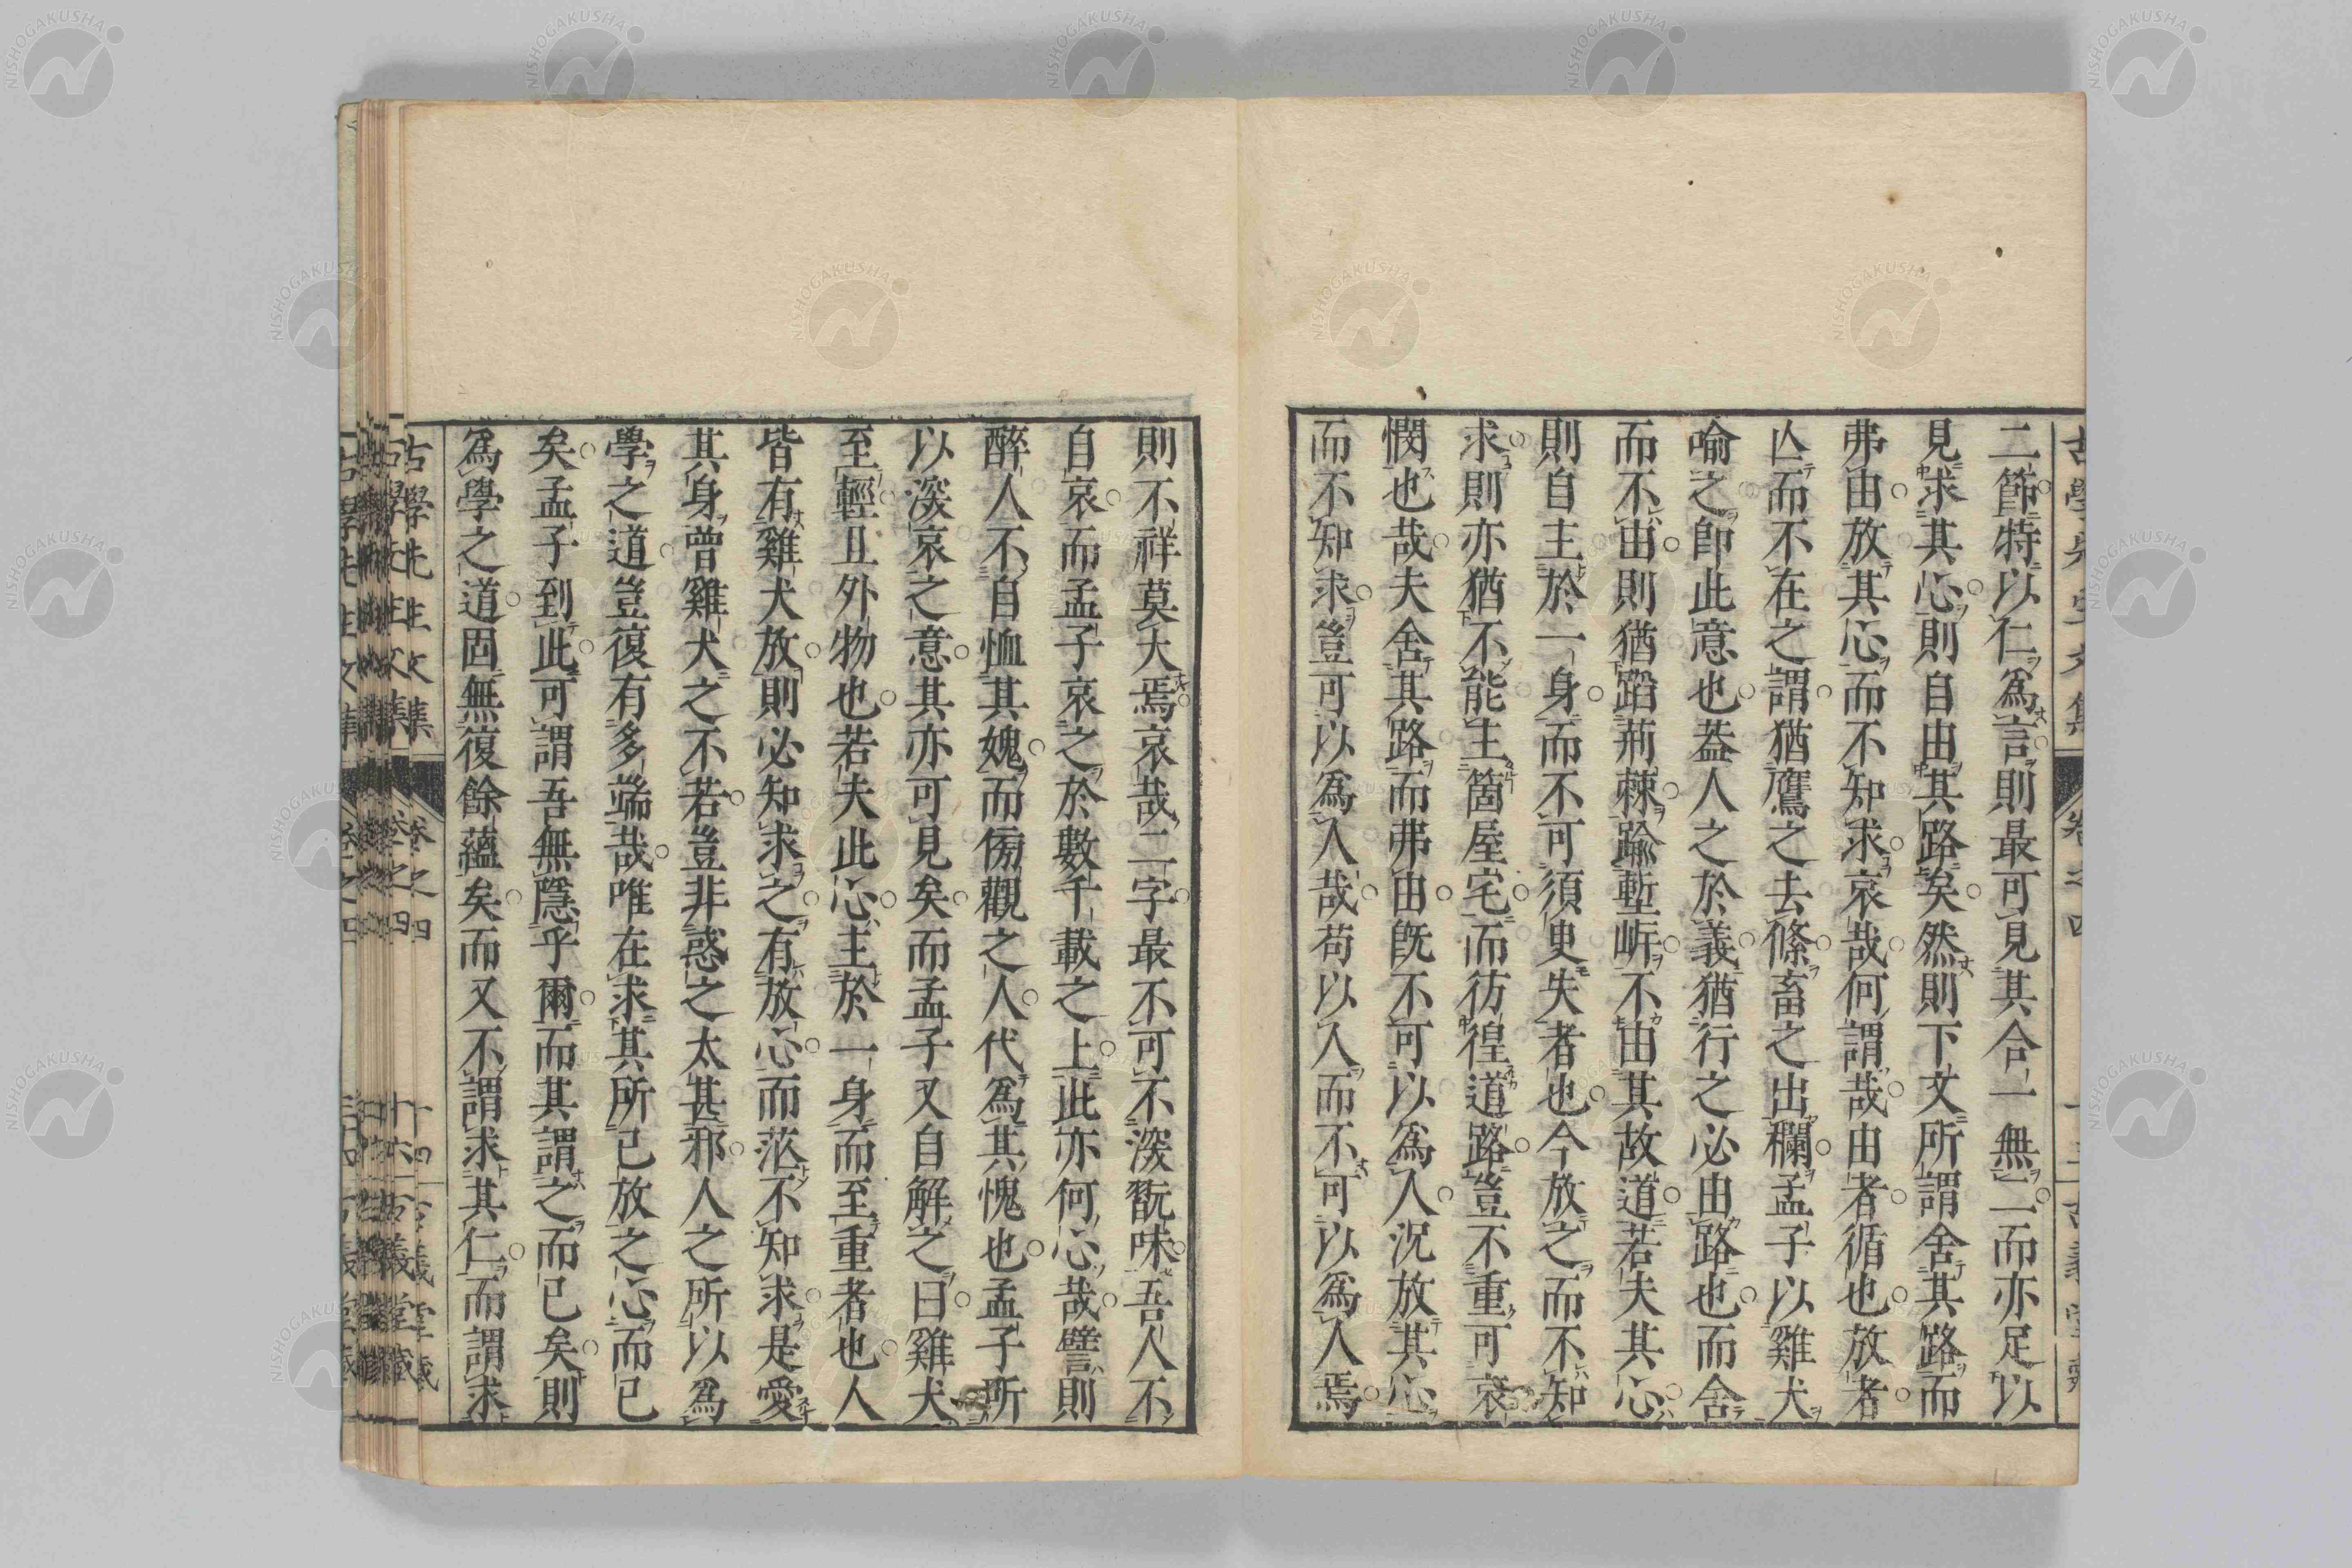 二節特以仁爲言則最可見其合一無二而亦足以
見求其心則自由其路矣然則下文所謂舍其路而
弗由放其心而不知求哀哉何謂哉由者循也放者
亾而不在之謂猶鷹之去絛畜之出欄孟子以雞犬
喻之卽此意也葢人之於義猶行之必由路也而舍
而不由則猶蹈荊棘踰塹㟁不由其故道若夫其心
則自主於一身而不可須臾失者也今放之而不知
求則亦猶不能主箇屋宅而彷徨道路豈不重可哀
憫也哉夫舍其路而弗由旣不可以爲人況放其心
而不知求豈可以爲人哉苟以人而不可以爲人焉
則不祥莫大焉哀哉二字最不可不深翫味吾人不
自哀而孟子哀之於數千載之上此亦何心哉譬則
醉人不自恤其媿而傍觀之人代爲其愧也孟子所
以深哀之意其亦可見矣而孟子又自解之曰雞犬
至輕且外物也若夫此心主於一身而至重者也人
皆有雞犬放則必知求之有放心而茫不知求是愛
其身曾雞犬之不若豈非惑之太甚邪人之所以爲
學之道豈復有多端哉唯在求其所已放之心而已
矣孟子到此可謂吾無隱乎爾而其謂之而已矣則
爲學之道固無復餘蘊矣而又不謂求其仁而謂求
古學先生文集
卷之四
NISHOGAKUSHA